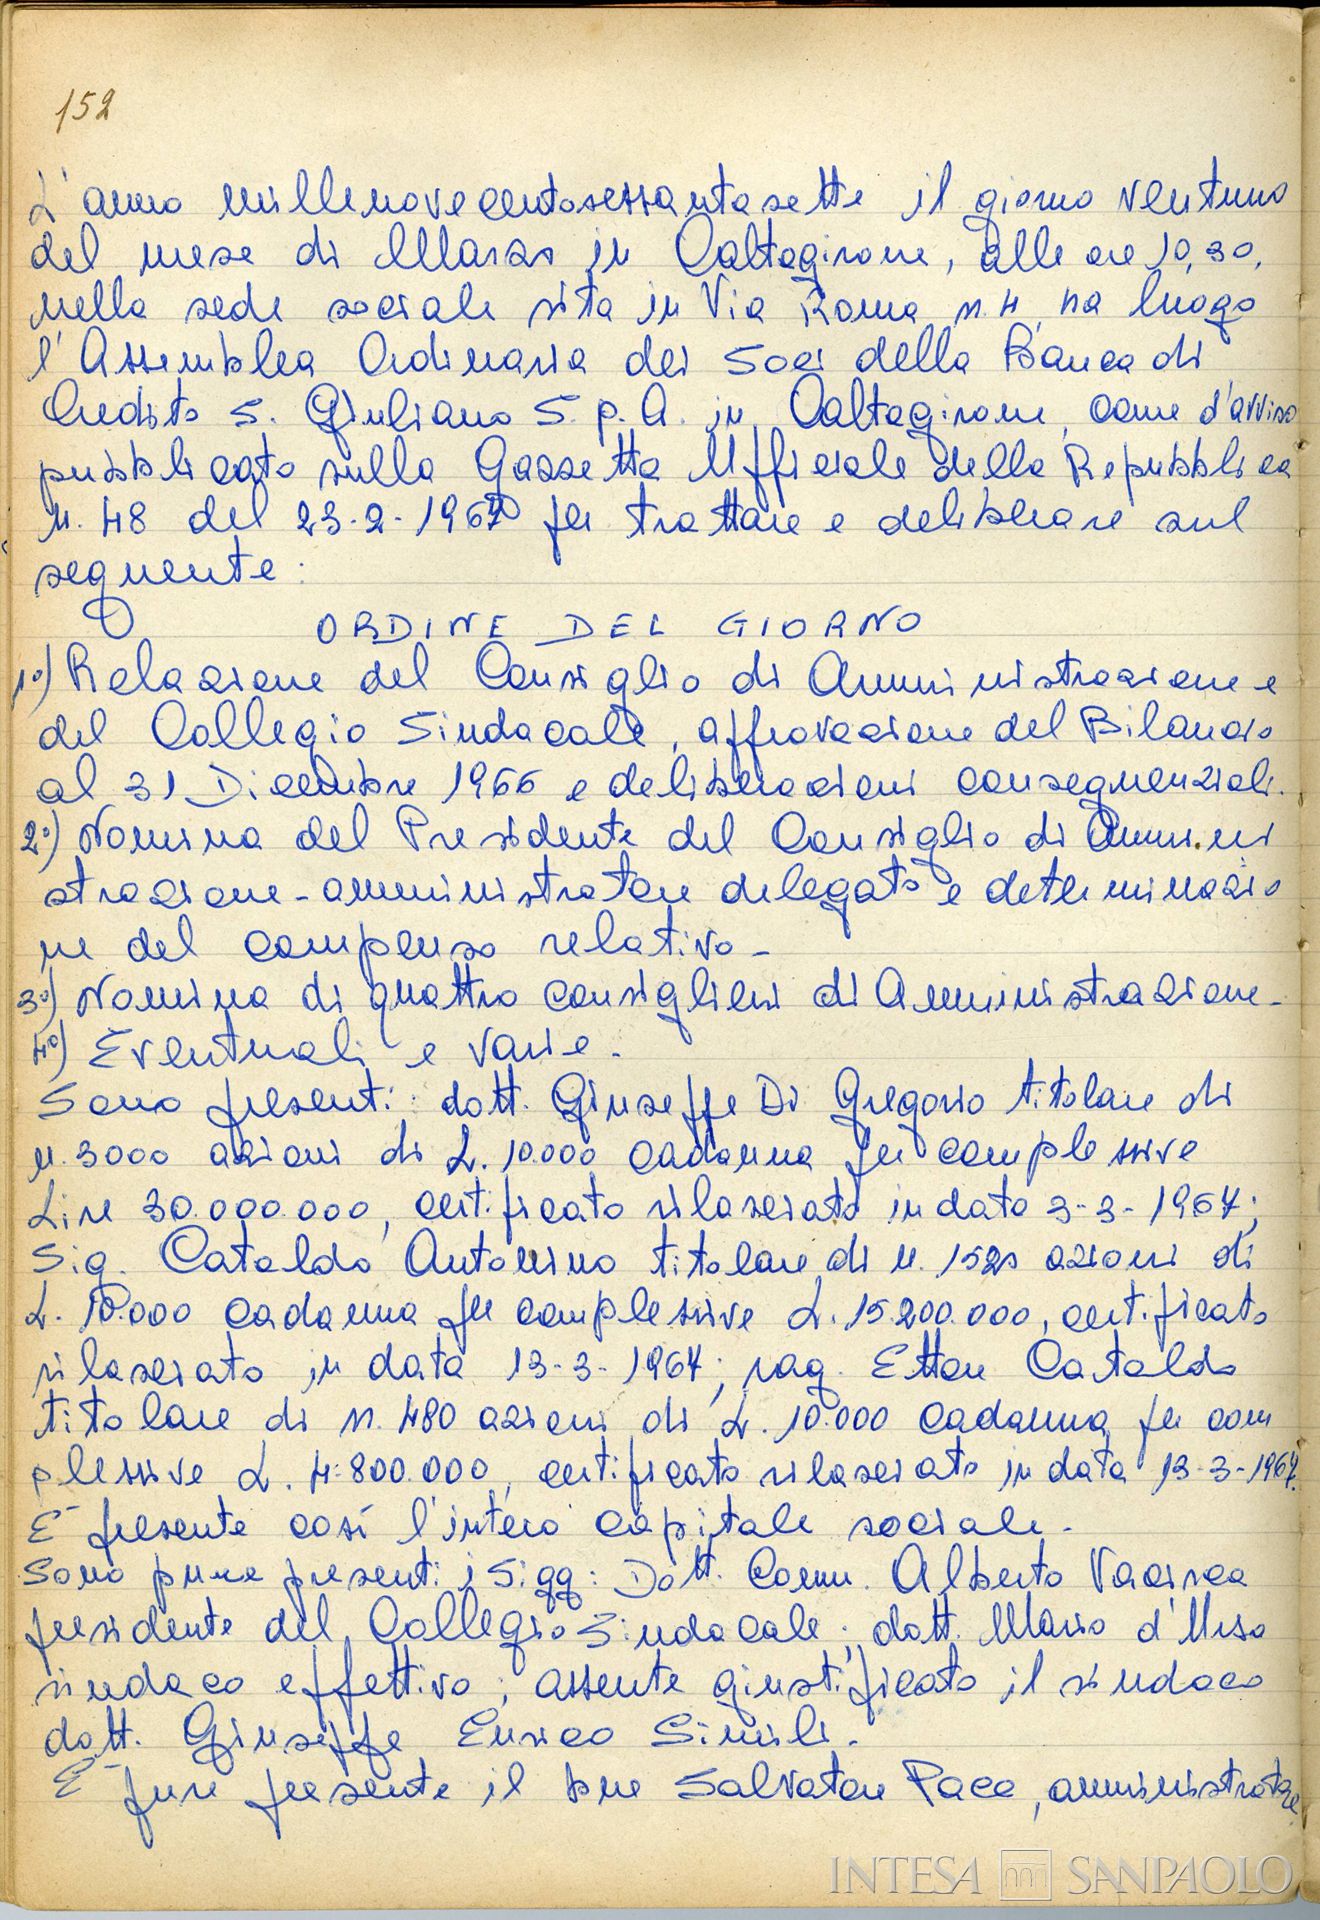 152
L'anno millenovecentosessantasette il giorno ventuno
del mese di Marzo in Caltagirone, alle ore 10,30,
nella sede sociale sita in Via Roma n. 4, ha luogo
l'Assemblea Ordinaria dei Soci della Banca di
Credito S. Giuliano S.p.A. in Caltagirone, come d'avviso
pubblicato sulla Gazzetta Ufficiale della Repubblica
n. 48 del 23-2-1967 per trattare e deliberare sul
seguente:
ORDINE DEL GIORNO
1°) Relazione del Consiglio di Amministrazione e
del Collegio Sindacale, approvazione del Bilancio
al 31 Dicembre 1966 e deliberazioni consequenziali.
2°) Nomina del Presidente del Consiglio di Ammini
strazione - amministratore delegato e determinazio
ne del compenso relativo -
3°) Nomina di quattro consiglieri di Amministrazione -
4°) Eventuali e varie -
Sono presenti: dott. Giuseppe Di Gregorio titolare di
n. 3000 azioni di L. 10.000 cadauna per complessive
Lire 30.000.000, certificato rilasciato in data 3-3-1967;
Sig. Cataldo Antonino titolare di n. 1520 azioni di
L. 10.000 cadauna per complessive L. 15.200.000, certificato
rilasciato in data 13-3-1967; rag. Ettore Cataldo
titolare di n. 480 azioni di L. 10.000 cadauna per com
plessive L. 4.800.000, certificato rilasciato in data 13-3-1967.
E' presente così l'intero capitale sociale -
Sono pure presenti i Sigg: Dott. Comm. Alberto Vacirca
presidente del Collegio Sindacale; dott. Mario d'Urso
sindaco effettivo; assente giustificato il sindaco
dott. Giuseppe Enrico Simili -
E' pure presente il Salvatore Pace, amministratore
INTESA SANPAOLO